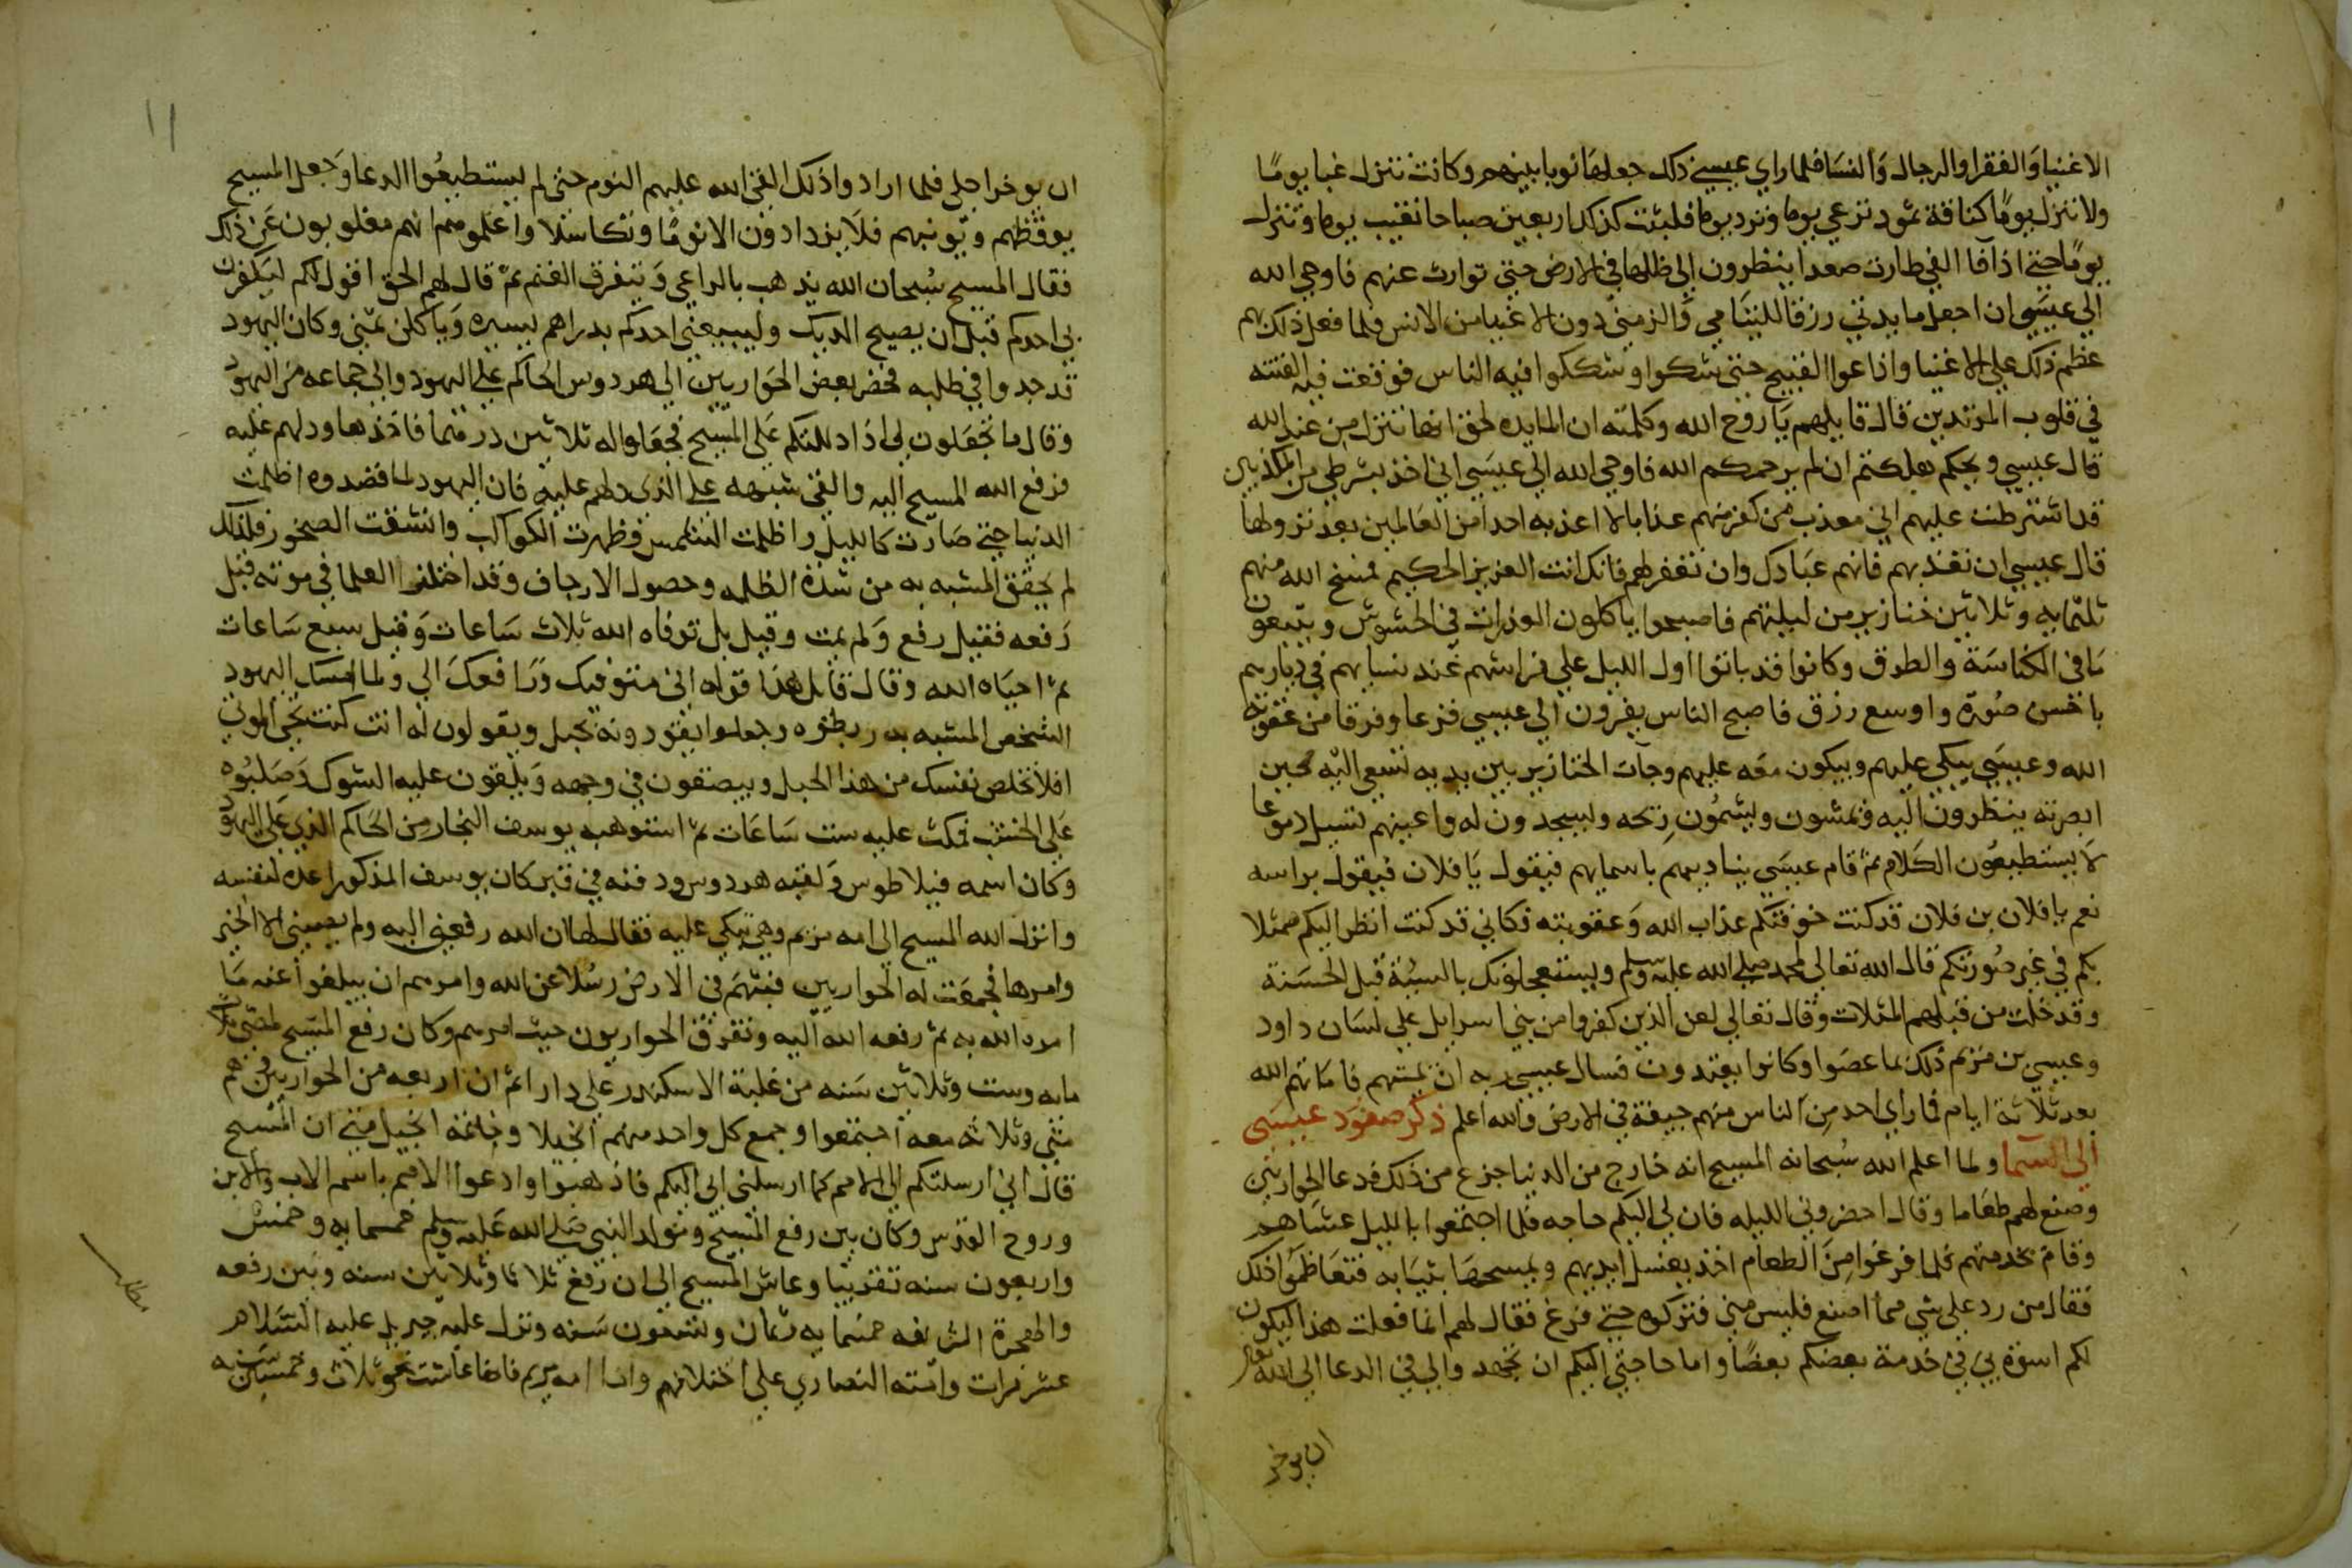 الاغنيا والفقرا والرجال والنسا فلما راي عيسي ذلك جعلها نوبا بينهم وكانت تنزل غبا يومًا
ولا تنزل يومًا كناقة ثمود ترعي يوما وترد يوما فلبثت كذلك اربعين صباحا تغيب يوما وتنزل
يومًا حتي اذا فا الفي طارت صعدا ينظرون الي ظلها في الارض حتي توارت عنهم فاوحي الله
الي عيسي ان اجعل مايدتي رزقا لليتامي والزمني دون الاغنيا من الانس فلما فعل ذلك بهم
عظم ذلك علي الاغنيا واذاعوا القبيح حتي شكوا وشككوا فيه الناس فوقعت فيه الفتنه
في قلوب المرتدين قال قايلهم يا روح الله وكلمته ان المايده لحق انها تنزل من عند الله
قال عيسي ويحكم هلكتم ان لم يرحمكم الله فاوحي الله الي عيسي اني اخذ بشرطي من المكذبين
قد اشترطت عليهم اني معذب من كفر منهم عذابا لا اعذبه احدا من العالمين بعد نزولها
قال عيسي ان تعذبهم فانهم عبادك وان تغفر لهم فانك انت العزيز الحكيم فمسخ الله منهم
ثلثمايه وثلاثين خنازير من ليلتهم فاصبحوا ياكلون العذرات في الحشوش ويتبعون
ما في الكناسة والطرق وكانوا قد باتوا اول الليل علي فراشهم عند نسايهم في ديارهم
باحسن صورة واوسع رزق فاصبح الناس يفرون الي عيسي فزعا وفرقا من عقوبة
الله وعيسي يبكي عليهم ويبكون معه عليهم وجات الخنازير بين يديه تسعي اليه حين
ابصرته ينظرون اليه ويمشون ويشمون ريحه ويسجدون له واعينهم تسيل دموعا
لا يستطيعون الكلام ثم قام عيسي يناديهم باسمايهم فيقول يا فلان فيقول براسه
نعم يا فلان بن فلان قد كنت خوفتكم عذاب الله وعقوبته فكاني قد كنت انظر اليكم ممثلا
بكم في غير صورتكم قال الله تعالي لمحمد صلي الله عليه وسلم ويستعجلونك بالسيئة قبل الحسنة
وقد خلت من قبلهم المثلات وقال تعالي لعن الذين كفروا من بني اسرايل علي لسان داود
وعيسي بن مريم ذلك بما عصوا وكانوا يعتدون فسال عيسي ربه ان يميتهم فاماتهم الله
بعد ثلاثة ايام فما راي احد من الناس منهم جيفة في الارض والله اعلم ذكر صعود عيسي
الي السما ولما اعلم الله سبحانه المسيح انه خارج من الدنيا جزع من ذلك فدعا الحواريين
وصنع لهم طعاما وقال احضروني الليله فان لي اليكم حاجه فلما اجتمعوا بالليل عشاهم
وقام يخدمهم فلما فرغوا من الطعام اخذ يغسل ايديهم ويمسحها بثيابه فتعاظموا ذلك
فقال من رد علي شي مما اصنع فليس مني فتركوه حتي فرغ فقال لهم انما فعلت هذا ليكون
لكم اسوة بي في خدمة بعضكم بعضًا واما حاجتي اليكم ان تجتهدوا لي في الدعا الي الله
ان يوخر
١١
ان يوخر اجلي فلما ارادوا ذلك القي الله عليهم النوم حتي لم يستطيعوا الدعا وجعل المسيح
يوقظهم ويونبهم فلا يزدادون الا نومًا وتكاسلا واعلموه انهم مغلوبون عن ذلك
فقال المسيح سبحان الله يذهب بالراعي وتتفرق الغنم ثم قال لهم الحق اقول لكم ليكفرن
بي احدكم قبل ان يصيح الديك وليبيعني احدكم بدراهم يسيره وياكلن ثمني وكان اليهود
قد جدوا في طلبه فحضر بعض الحواريين الي هردوس الحاكم علي اليهود والي جماعه من اليهود
وقال ما تجعلون لي اذا دللتكم علي المسيح فجعلوا له ثلاثين درهما فاخذها ودلهم عليه
فرفع الله المسيح اليه والقي شبهه علي الذي دلهم عليه فان اليهود لما قصدوه اظلمت
الدنيا حتي صارت كالليل واظلمت الشمس وظهرت الكواكب وانشقت الصخور فلذلك
لم يحقق المشبه به من شدة الظلمه وحصول الارجاف وقد اختلف العلما في موته قبل
رفعه فقيل رفع ولم يمت وقيل بل توفاه الله ثلاث ساعات وقيل سبع ساعات
ثم احياه الله وقال قايل هذا قوله اني متوفيك ورافعك الي ولما امسك اليهود
الشخص المشبه به ربطوه وجعلوا يقودونه بحبل ويقولون له انت كنت تحيي الموتي
افلا تخلص نفسك من هذا الحبل ويبصقون في وجهه ويلقون عليه الشوك وصلبوه
علي الخشب فمكث عليه ست ساعات ثم استوهبه يوسف النجار من الحاكم الذي علي اليهود
وكان اسمه فيلاطوس ولقبه هردوس ودفنه في قبر كان يوسف المذكور اعده لنفسه
وانزل الله المسيح الي امه مريم وهي تبكي عليه فقال لها ان الله رفعني اليه ولم يصبني الا الخير
وامرها فجمعت له الحواريين فبثهم في الارض رسلا عن الله وامرهم ان يبلغوا عنه ما
امره الله به ثم رفعه الله اليه وتفرق الحواريون حيث امرهم وكان رفع المسيح لمضي ثلاث
مايه وست وثلاثين سنه من غلبة الاسكندر علي دارا ثم ان اربعه من الحواريين وهم
متي وثلاثه معه اجتمعوا وجمع كل واحد منهم انجيلا وخاتمة انجيل متي ان المسيح
قال اني ارسلتكم الي الامم كما ارسلني ابي اليكم فاذهبوا وادعوا الامم باسم الاب والابن
وروح القدس وكان بين رفع المسيح ومولد النبي صلي الله عليه وسلم خمسمايه وخمس
واربعون سنه تقريبا وعاش المسيح الي ان رفع ثلاثا وثلاثين سنه وبين رفعه
والهجرة الشريفه خمسمايه وثمان وتسعون سنه ونزل عليه جبريل عليه السلام
عشر مرات وامته النصاري علي اختلافهم واما امه مريم فانها عاشت نحو ثلاث وخمسين سنه